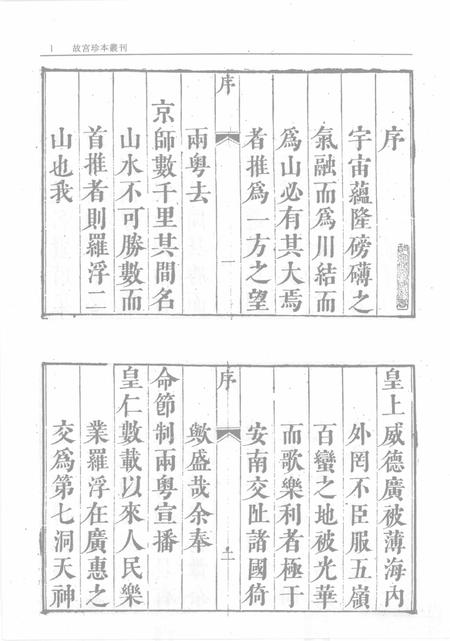 1 故宮珍本叢刊
序
宇宙蘊隆磅礴之
氣融而為川結而
為山必有其大焉
者推為一方之望
序
一
兩粵去
京師數千里其間名
山水不可勝數而
首推者則羅浮二
山也我
皇上威德廣被薄海內
外罔不臣服五嶺
百蠻之地被光華
而歌樂利者極于
安南交阯諸國猗
序
二
歟盛哉余奉
命節制兩粵宣播
皇仁數載以來人民樂
業羅浮在廣惠之
交為第七洞天神